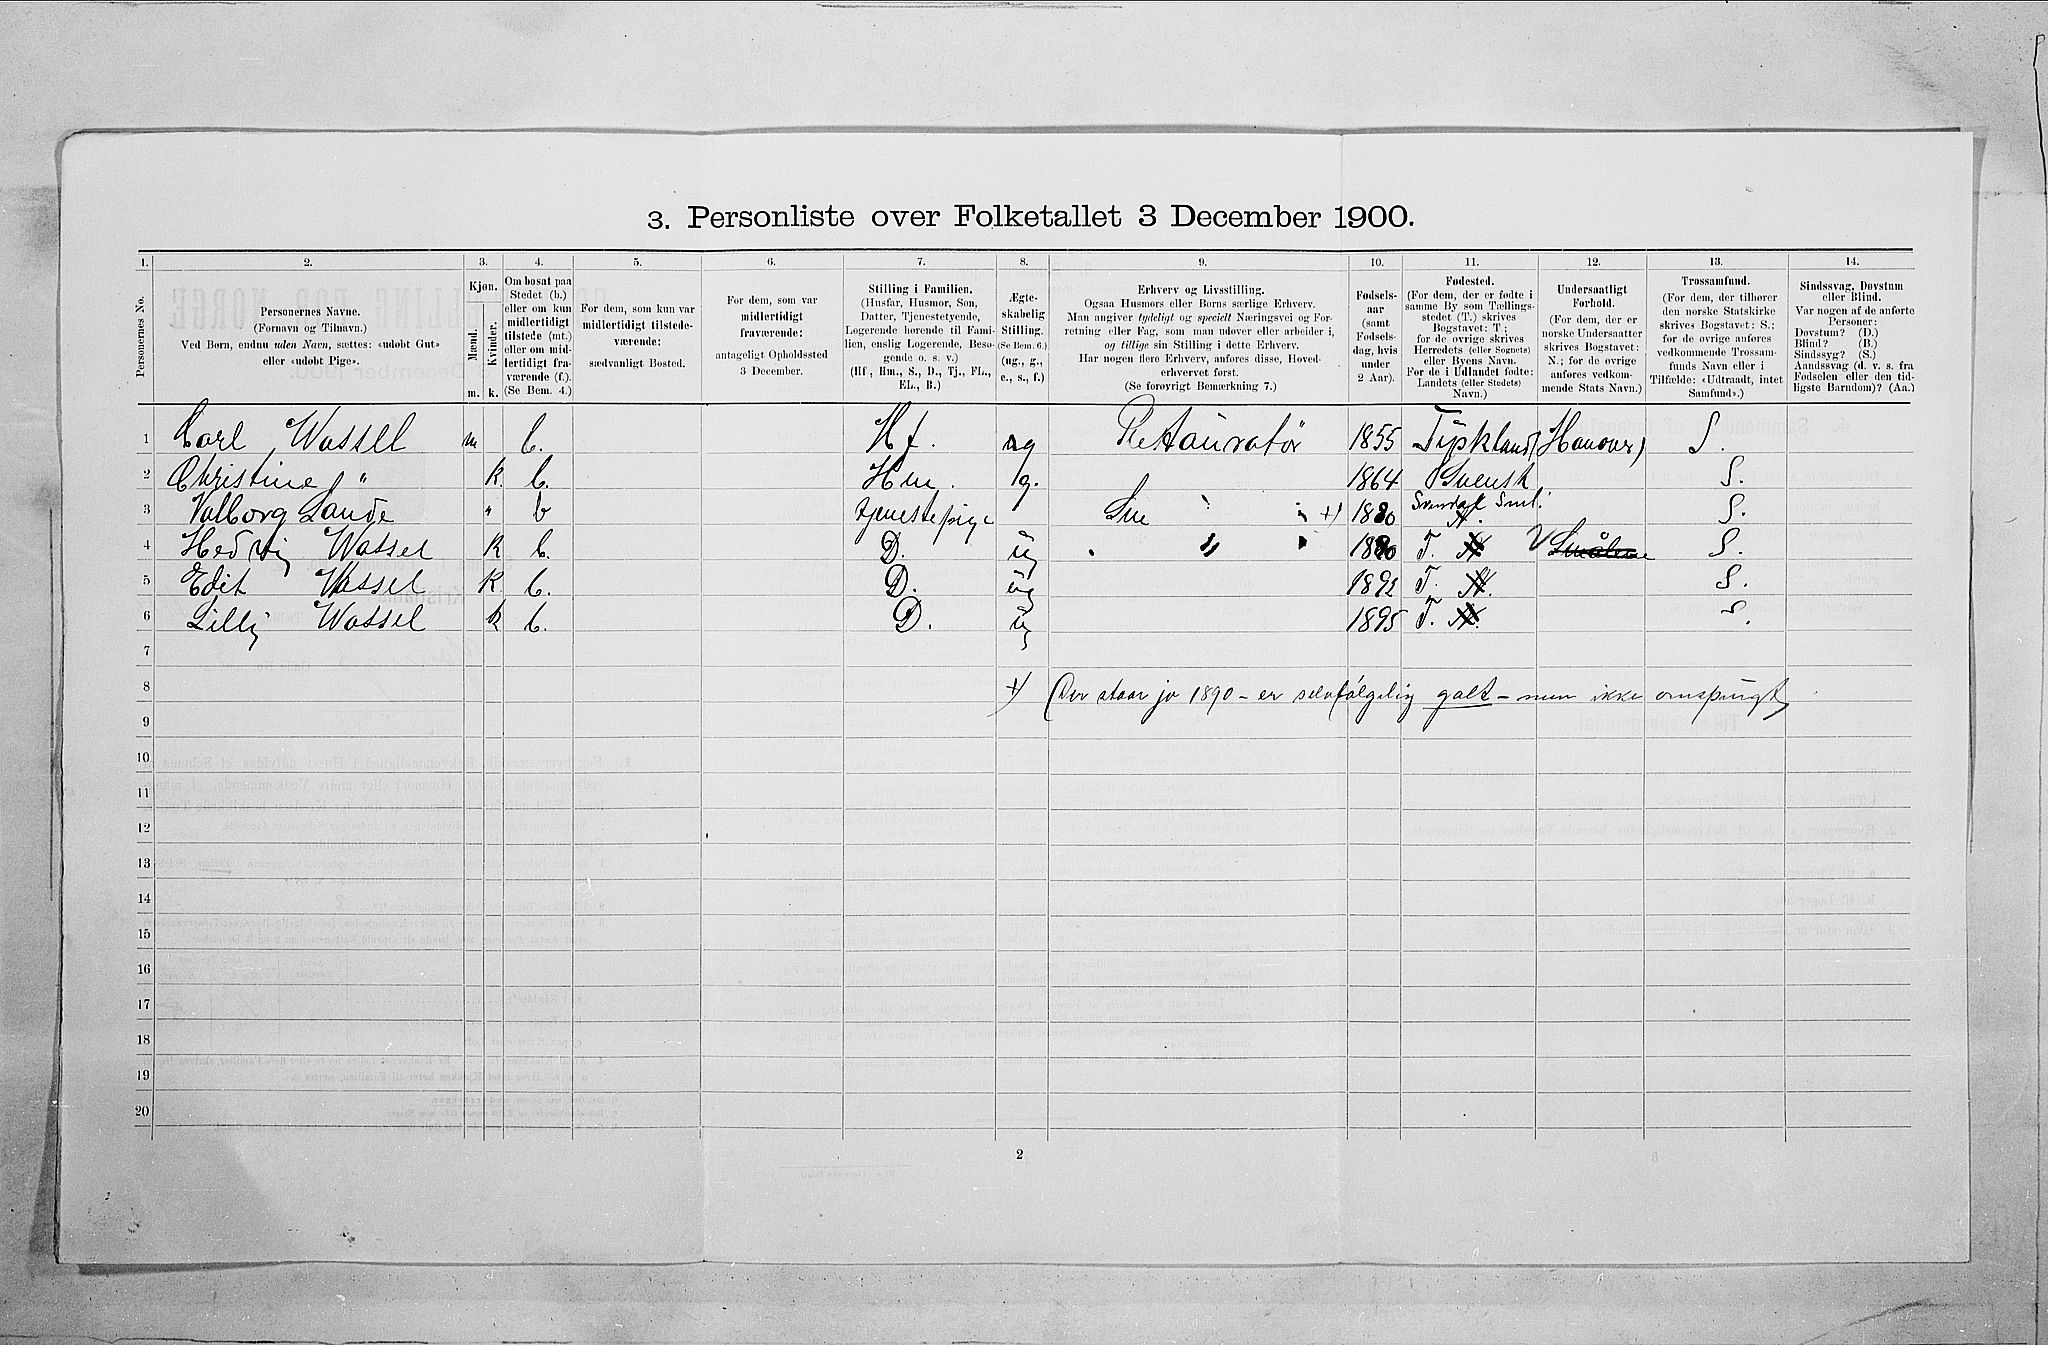 3. Personliste over Folketallet 3 December 1900.
1. 2. 3. 4. 5. 6. 7. 8. 9. 10. 11. 12. 13. 14.
Personernes No.
Personernes Navne.
(Fornavn og Tilnavn.)
Ved Børn, endnu uden Navn, sættes: «udøbt Gut»
eller «udøbt Pige».
Kjøn.
Mænd. Kvinder.
m. k.
Om bosat paa
Stedet (b.)
eller om kun
midlertidigt
tilstede (mt.)
eller om mid-
lertidigt fra-
værende (f.).
(Se Bem. 4.)
For dem, som kun var
midlertidigt tilstede-
værende:
sædvanligt Bosted.
For dem, som var
midlertidigt
fraværende:
antageligt Opholdssted
3 December.
Stilling i Familien.
(Husfar, Husmor, Søn,
Datter, Tjenestetyende,
Logerende hørende til Fami-
lien, enslig Logerende, Besø-
gende o. s. v.)
(Hf, Hm., S., D., Tj., FL.,
EL., B.)
Ægte-
skabelig
Stilling.
(Se Bem. 6.)
(ug., g.,
e., s., f.)
Erhverv og Livsstilling.
Ogsaa Husmors eller Børns særlige Erhverv.
Man angiver tydeligt og specielt Næringsvei og For-
retning eller Fag, som man udøver eller arbeider i,
og tillige sin Stilling i dette Erhverv.
Har nogen flere Erhverv, anføres disse, Hoved-
erhvervet først.
(Se forøvrigt Bemærkning 7.)
Fødsels-
aar
(samt
Fødsels-
dag, hvis
under
2 Aar).
Fødested.
(For dem, der er fødte i
samme By som Tællings-
stedet (T.) skrives
Bogstavet: T;
for de øvrige skrives
Herredets (eller Sognets)
eller Byens Navn.
For de i Udlandet fødte:
Landets (eller Stedets)
Navn.)
Undersaatligt
Forhold.
(For dem, der er
norske Undersaatter
skrives Bogstavet:
N.; for de øvrige
anføres vedkom-
mende Stats Navn.)
Trossamfund.
(For dem, der tilhører
den norske Statskirke
skrives Bogstavet: S.;
for de øvrige anføres
vedkommende Trossam-
funds Navn eller i
Tilfælde: «Udtraadt, intet
Samfund».)
Sindssvag, Døvstum
eller Blind.
Var nogen af de anførte
Personer:
Døvstum? (D.)
Blind? (B.)
Sindssyg? (S.)
Aandssvag (d. v. s. fra
Fødselen eller den tid-
ligste Barndom)? (Aa.)
1 Carl Wassel m b. Hf. ug Restauratør 1855 Tyskland (Hanover) S.
2 Christine " k. b. Hm. g. 1864 Svensk S.
3 Valborg Lande " b tjenestepige +) 1880 N. S.
4 Hedvig Wassel k b. D. ug 1880 T. N V Smålene S.
5 Edit Wassel k b. D. ug 1892 T. N. S.
6 Lilly Wassel k b. D. ug 1895 T. N. S.
7
8 +) (Der staar jo 1890 – er selvfølgelig galt – men ikke omspurgt)
9
10
11
12
13
14
15
16
17
18
19
20
2